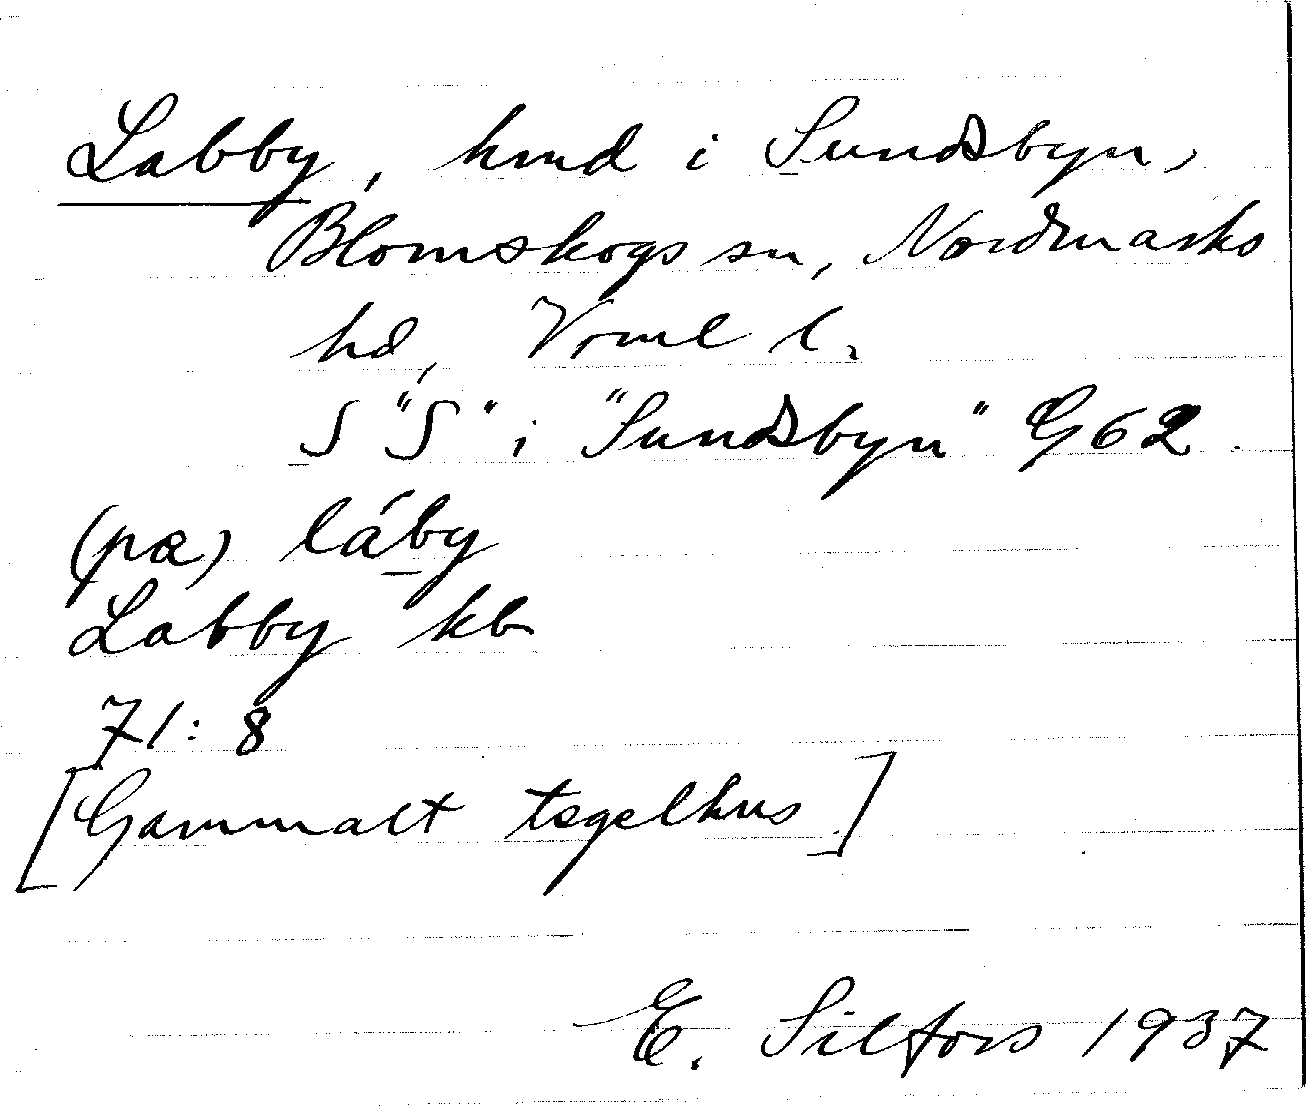 Labby, hmd i Sundsbyn,
Blomskogs sn, Nordmarks
hd, Vrml l.
S "S" i "Sundsbyn" G62.
(pa) láby
Labby kb
71:8
[Gammalt tegelhus]
E. Silfors 1937